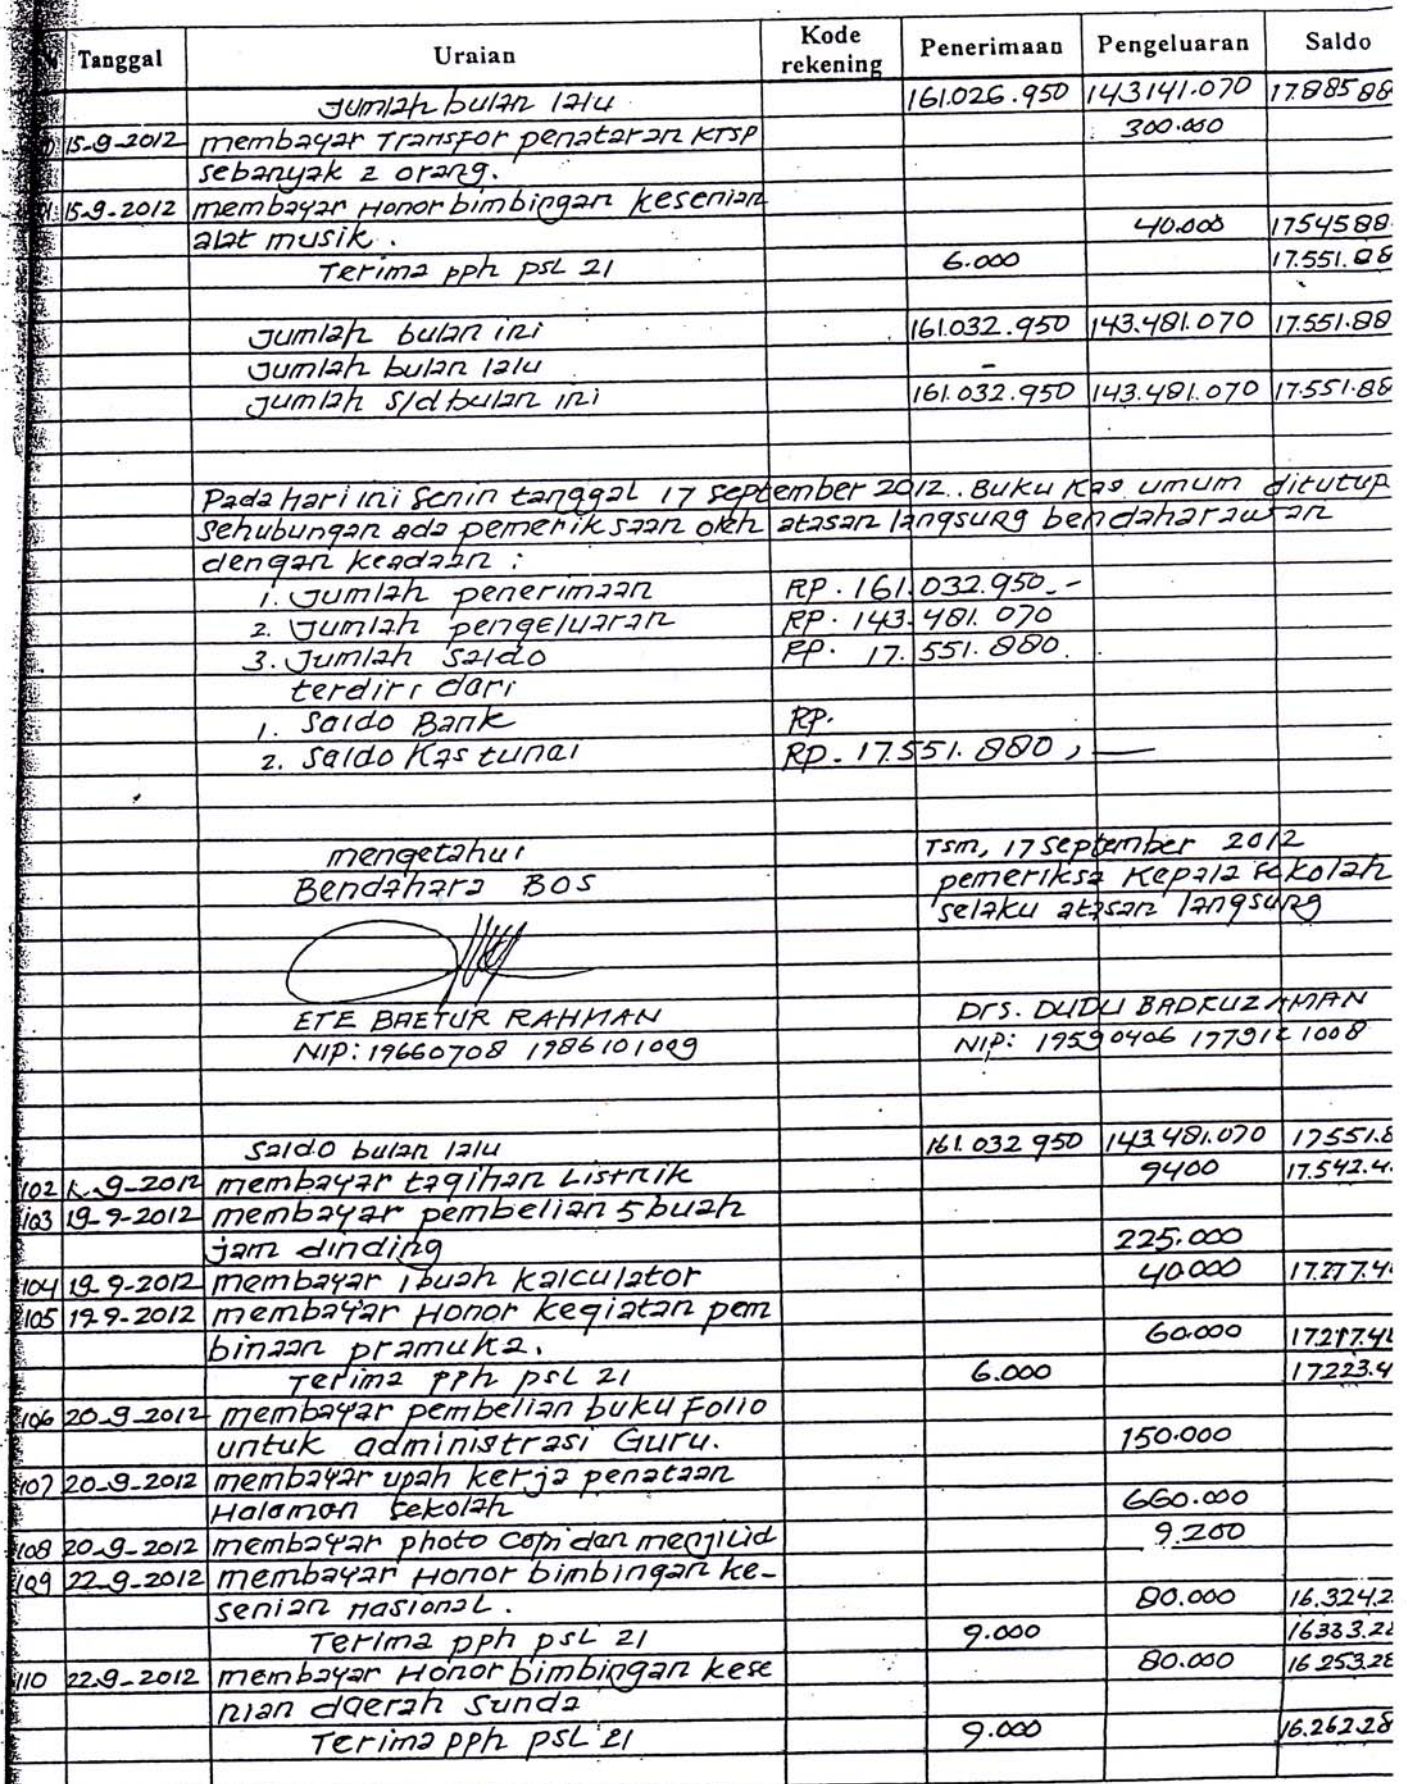 Tanggal Uraian Kode rekening Penerimaan Pengeluaran Saldo
Jumlah bulan lalu 161.026.950 143141.070 17.885 88
15-9-2012 membayar Transfor penataran KTSP 300.000
sebanyak 2 orang.
1 15-9-2012 membayar Honor bimbingan kesenian
alat musik. 40.000 1754588
Terima pph psl 21 6.000 17.551.88
Jumlah bulan ini 161.032.950 143.481.070 17.551.88
Jumlah bulan lalu -
Jumlah s/d bulan ini 161.032.950 143.481.070 17.551.88
Pada hari ini Senin tanggal 17 September 2012.. Buku Kas umum ditutup
sehubungan ada pemeriksaan oleh atasan langsung bendaharawan
dengan keadaan :
1. Jumlah penerimaan RP. 161.032.950.-
2. Jumlah pengeluaran RP. 143.481.070
3. Jumlah saldo RP. 17.551.880.
terdiri dari
1. Saldo Bank RP.
2. Saldo Kas tunai RP. 17.551.880,—
mengetahui Tsm, 17 September 2012
Bendahara BOS pemeriksa Kepala sekolah
selaku atasan langsung
ETE BAETUR RAHMAN Drs. DUDU BADRUZAMAN
NIP: 19660708 1986101009 NIP: 19590406 197912 1008
Saldo bulan lalu 161.032 950 143.481.070 17551.8
102 9-2012 membayar tagihan Listrik 9400 17.542.4
103 19-9-2012 membayar pembelian 5 buah
jam dinding 225.000
104 19-9-2012 membayar 1 buah Kalculator 40.000 17.277.4
105 19-9-2012 membayar Honor kegiatan pem
binaan pramuka. 60.000 17.217.48
Terima pph psl 21 6.000 17223.4
106 20-9-2012 membayar pembelian buku Folio
untuk administrasi Guru. 150.000
107 20-9-2012 membayar upah kerja penataan
Halaman sekolah 660.000
108 20-9-2012 membayar photo copi dan menjilid 9.200
109 22-9-2012 membayar Honor bimbingan ke-
senian nasional. 80.000 16.324.2
Terima pph psl 21 9.000 16333.28
110 22-9-2012 membayar Honor bimbingan kese 80.000 16 253.28
nian daerah Sunda
Terima pph psl 21 9.000 16.262.28